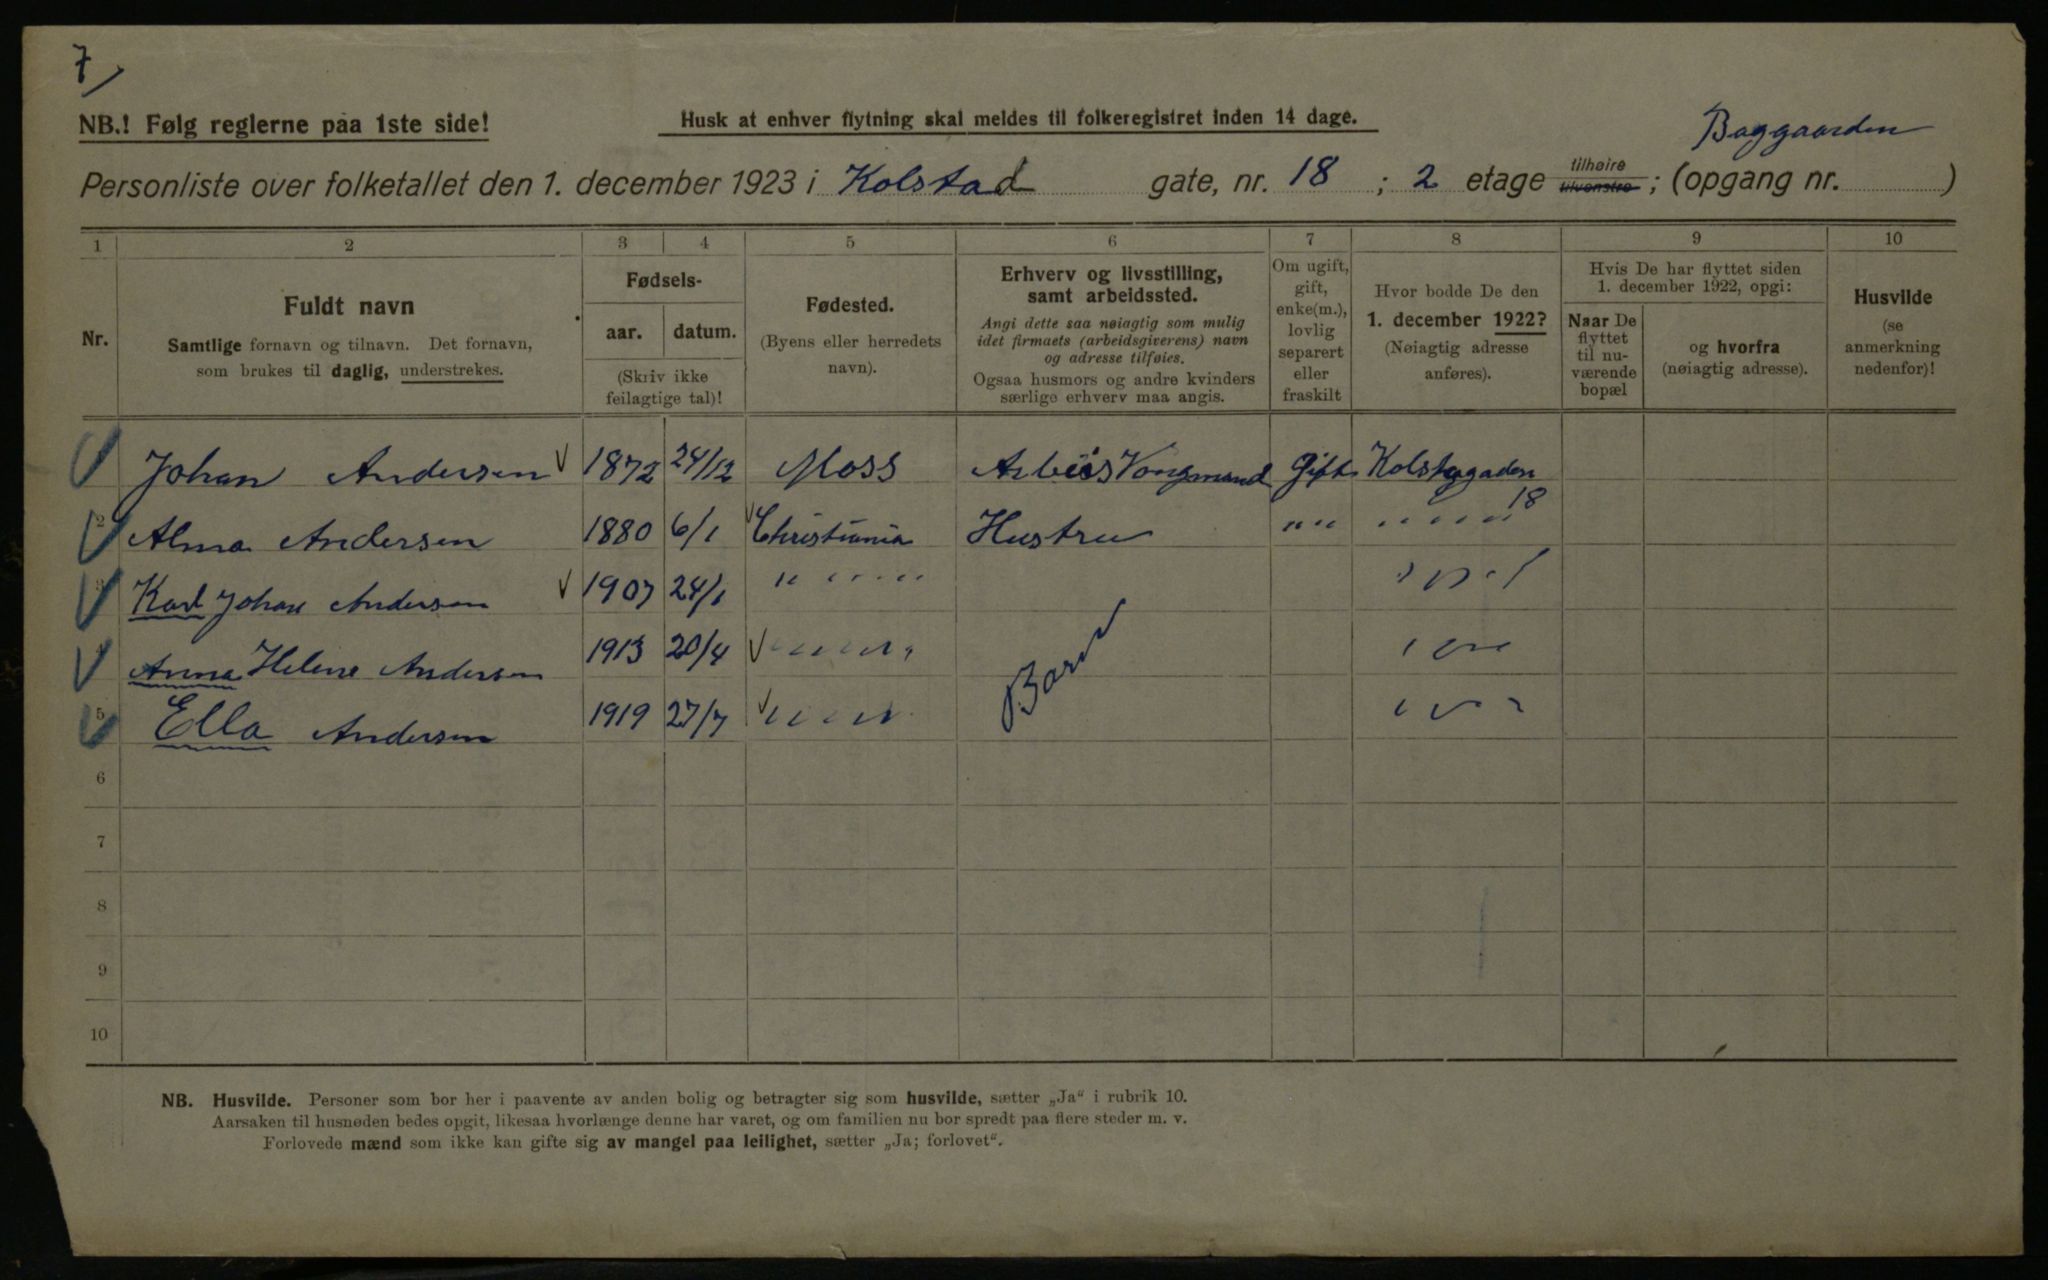 7
NB.! Følg reglerne paa 1ste side!
Husk at enhver flytning skal meldes til folkeregistret inden 14 dage.
Baggaarden
Personliste over folketallet den 1. december 1923 i Kolstad gate, nr. 18 ; 2 etage tilhøire tilvenstre ; (opgang nr. )
1 2 3 4 5 6 7 8 9 10
Nr.
Fuldt navn
Samtlige fornavn og tilnavn. Det fornavn,
som brukes til daglig, understrekes.
Fødsels-
aar. datum.
(Skriv ikke
feilagtige tal)!
Fødested.
(Byens eller herredets
navn).
Erhverv og livsstilling,
samt arbeidssted.
Angi dette saa nøiagtig som mulig
idet firmaets (arbeidsgiverens) navn
og adresse tilføies.
Ogsaa husmors og andre kvinders
særlige erhverv maa angis.
Om ugift,
gift,
enke(m.),
lovlig
separert
eller
fraskilt
Hvor bodde De den
1. december 1922?
(Nøiagtig adresse
anføres).
Hvis De har flyttet siden
1. december 1922, opgi:
Naar De
flyttet
til nu-
værende
bopæl
og hvorfra
(nøiagtig adresse).
Husvilde
(se
anmerkning
nedenfor)!
Johan Andersen 1872 24/12 Moss Gift
18
2 Alma Andersen 1880 6/1 Christiania Hustru " " " " " "
Karl Johan Andersen 1907 24/1 " " " " "
Anna Helene Andersen 1913 20/4 " " " " "
Barn
5 Ella Andersen 1919 27/7 " " " "
6
7
8
9
10
NB. Husvilde. Personer som bor her i paavente av anden bolig og betragter sig som husvilde, sætter „Ja“ i rubrik 10.
Aarsaken til husnøden bedes opgit, likesaa hvorlænge denne har varet, og om familien nu bor spredt paa flere steder m. v.
Forlovede mænd som ikke kan gifte sig av mangel paa leilighet, sætter „Ja; forlovet“.